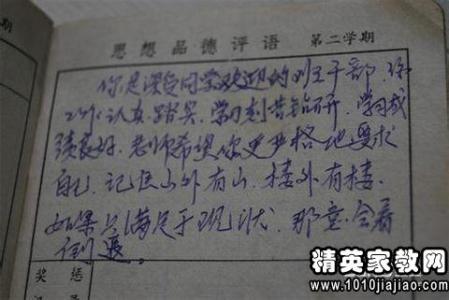 思想品德评语 第二学期
你是深受同学欢迎的班干部 你
工作认真踏实，学习刻苦钻研，学习成
绩良好。老师希望你更严格地要求
自己，记住山外有山，楼外有楼。
如果只满足于现状，那意会着
倒退。
奖惩
精英家教网
www.1010jiajiao.com